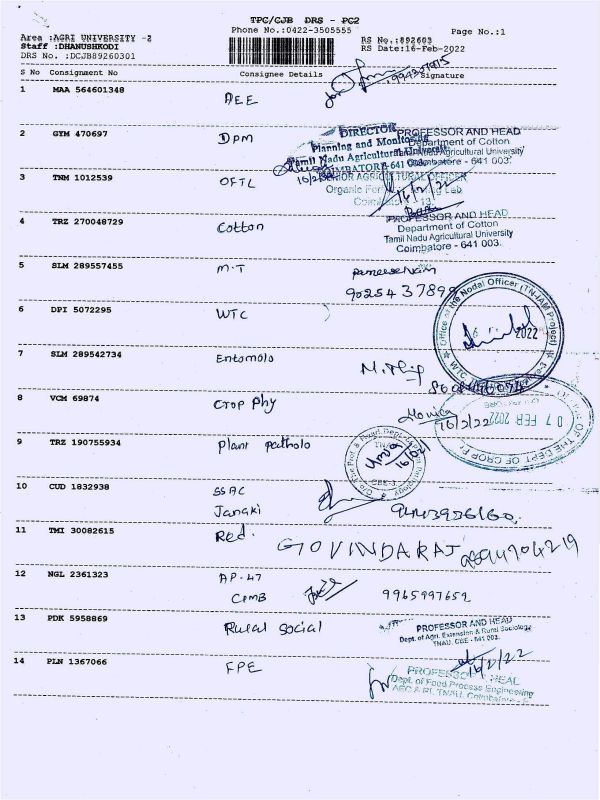 TPC/CJB DRS - PC2
Phone No.:0422-3505555
Page No.:1
Area :AGRI UNIVERSITY -2
Staff :DHANUSHKODI
DRS No. :DCJB89260301
RS No.:892603
RS Date:16-Feb-2022
S No Consignment No Consignee Details Signature
1 MAA 564601348 AEE
2 GYM 470697 DPM
DIRECTOR
Planning and Monitoring
Tamil Nadu Agricultural University
COIMBATORE-641
PROFESSOR AND HEAD
Department of Cotton
Tamil Nadu Agricultural University
Coimbatore - 641 003.
3 TNM 1012539 OFTL
SENIOR AGRICULTURAL OFFICER
Organic Lab
16/2/22
4 TRZ 270048729 Cotton
PROFESSOR AND HEAD
Department of Cotton
Tamil Nadu Agricultural University
Coimbatore - 641 003.
5 SLM 289557455 M.T
6 DPI 5072295 WTC
Office of the Nodal Officer (TN-IAM Project)
WTC
2022
7 SLM 289542734 Entomolo
8 VCM 69874 Crop Phy
Monica
16/2/22
07 FEB 2022
THE DEPT OF CROP
9 TRZ 190755934 Plant patholo
10 CUD 1832938 SSAC
Janaki
11 TMI 30082615 Red.
GOVINDARAJ
12 NGL 2361323 AP-47
CPMB 9965997652
13 PDK 5958869 Rural Social
PROFESSOR AND HEAD
Dept. of Agri. Extension & Rural Sociology
TNAU, CBE - 641 003.
14 PLN 1367066 FPE
16/2/22
PROFESSOR HEAD
Dept. of Food Process Engineering
AEC & RI, TNAU, Coimbatore - 3